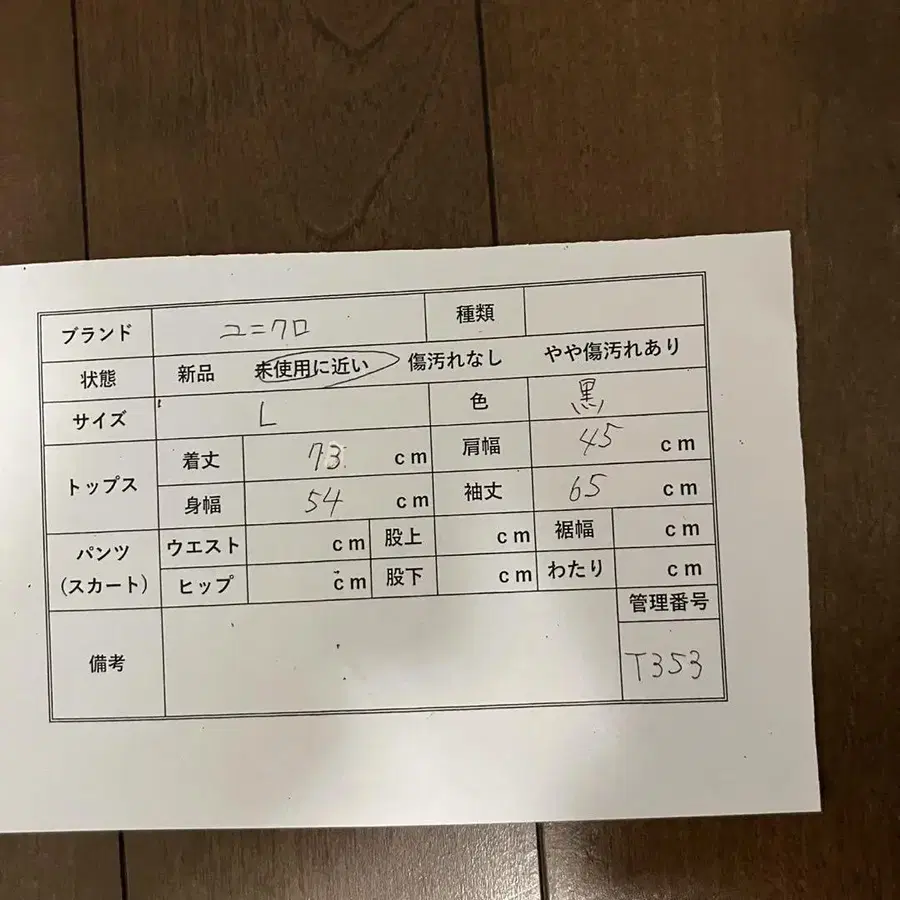 ブランド ユニクロ 種類
状態 新品 未使用に近い 傷汚れなし やや傷汚れあり
サイズ L 色 黒
トップス 着丈 73 cm 肩幅 45 cm
身幅 54 cm 袖丈 65 cm
パンツ (スカート) ウエスト cm 股上 cm 裾幅 cm
ヒップ cm 股下 cm わたり cm
備考 管理番号
T353